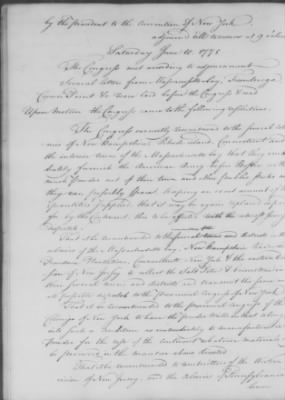 by the president to the convention of New York
adjourned till tomorrow at 9 o'Clock
Saturday June 10. 1775
The Congress met according to adjournment
Several letters from Massachusetts bay, Ticonderoga
Crown Point &c were laid before the Congress & read
Upon motion the Congress came to the following resolutions
The Congress earnestly recommend to the several colonies
of New Hampshire, Rhode island, Connecticut and
the interior towns of the Massachusetts bay that they immediately
furnish the American Army before Boston with as
much powder out of their town and other public stocks as
they can possibly spare keeping an exact account of the
quantities supplied, that it may be again replaced or paid
for by the Continent, this to be effected with the utmost secrecy
dispatch
That it be recommended to the several towns and districts in the
colonies of the Massachusetts bay New Hampshire
Providence Plantations Connecticut New York & the eastern division
of New Jersey to collect the Salt Petre & brimstone in
their several towns and districts and transmit the same
possible dispatch to the provincial Congress of New York
That it be recommended to the provincial
of New York to have the powder mills
into such a condition as immediately to manufacture
powder for the use of the continent whatever materials
be procured in the manner above directed
That it be recommended to committees of the Western
vision of New Jersey, and the colonies of Pennsylvania